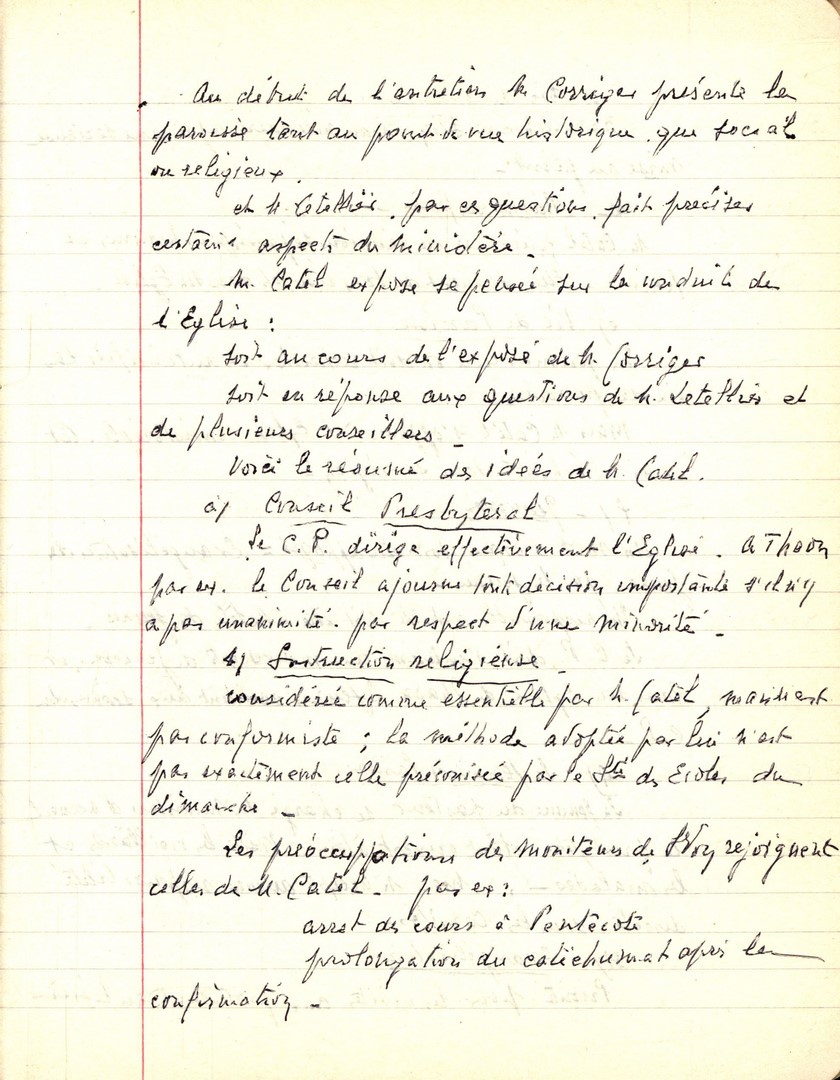 Au début de l'entretien M. Corriger présente la
paroisse tant au point de vue historique, que social
ou religieux.
et M. Letellier, par ces questions, fait préciser
certains aspects du ministère.
M. Catel expose sa pensée sur la conduite de
l'Eglise :
soit au cours de l'exposé de M. Corriger
soit en réponse aux questions de M. Letellier et
de plusieurs conseillers _
Voici le résumé des idées de M. Catel.
a/ Conseil Presbytéral
Le C.P. dirige effectivement l'Eglise. A Thaon
par ex. le Conseil ajourne toute décision importante s'il n'y
a pas unanimité. par respect d'une minorité _
b/ Instruction religieuse _
considérée comme essentielle par M. Catel, mais n'est
pas conformiste ; la méthode adoptée par lui n'est
pas exactement celle préconisée par la Sté des Ecoles du
dimanche _
Les préoccupations des moniteurs de St Voy rejoignent
celles de M. Catel _ par ex :
arrêt des cours à Pentecôte
prolongation du catéchuménat après la
confirmation _